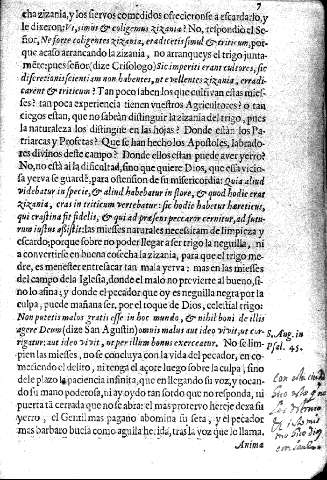 7
cha zizania, y los siervos comedidos ofrecieronse a escardarlo, y
le dixeron: Vis, imus & coligemus zizania? No, respondiò el Se-
ñor, Ne forte coligentes zizania, eradicetis simul & triticum, por-
que acaso arrancando la zizania, no arranqueys el trigo junta-
mēte; pues señor (dize Crisologo) Sic imperiti erant cultores, sic
discretionis scientiam non habentes, ut evellentes zizania, erradi-
carent & triticum? Tan poco saben los que cultivan estas mies-
ses? tan poca experiencia tienen vuestros Agricultores? o tan
ciegos estan, que no sabràn distinguir la zizania del trigo, pues
la naturaleza los distingue en las hojas? Donde estàn los Pa-
triarcas y Profetas? Que se han hecho los Apostoles, labrado-
res divinos deste campo? Donde ellos estan puede aver yerro?
No, no està ai la dificultad, sino que quiere Dios, que essa vicio-
sa yerva se guarde, para ostension de su misericordia: Quia aliud
videbatur in specie, & aliud habebatur in flore, & quod hodie erat
zizania, cras in triticum vertebatur: sic hodie habetur hæreticus,
qui crastina sit fidelis, & qui ad præsens peccator cernitur, ad futu-
rum iustus assistit: las miesses naturales necessitam de limpieza y
escardo; porque sobre no poder llegar a ser trigo la neguilla, ni
a convertirse en buena cosecha la zizania, para que el trigo me-
dre, es menester entresacar tan mala yerva: mas en las miesses
del campo dela Iglesia, donde el malo no previerte al bueno, si-
no lo afina; y donde el pecador que oy es neguilla negra por la
culpa, puede mañana ser, por el toque de Dios, celestial trigo:
Non potetis malos gratis esse in hoc mundo, & nihil boni de illis
agere Deum (dize San Agustin) omnis malus aut ideo vivit, ut cor-
rigatur; aut ideo vivit, ut per illum bonus exerceatur. No se lim-
pien las miesses, no se concluya con la vida del pecador, en co-
metiendo el delito, ni tenga el açote luego sobre la culpa, sino
dele plazo la paciencia infinita, que en llegando su voz, y tocan-
do su mano poderosa, ni ay oydo tan sordo que no responda, ni
puerta tã cerrada que no se abra: el mas protervo hereje dexa su
yerro, el Gentil mas pagano abomina su seta, y el pecador
mas barbaro bucla como aguila herida, tras la voz que le llama.
Anima
S. Aug. in
Psal. 45.